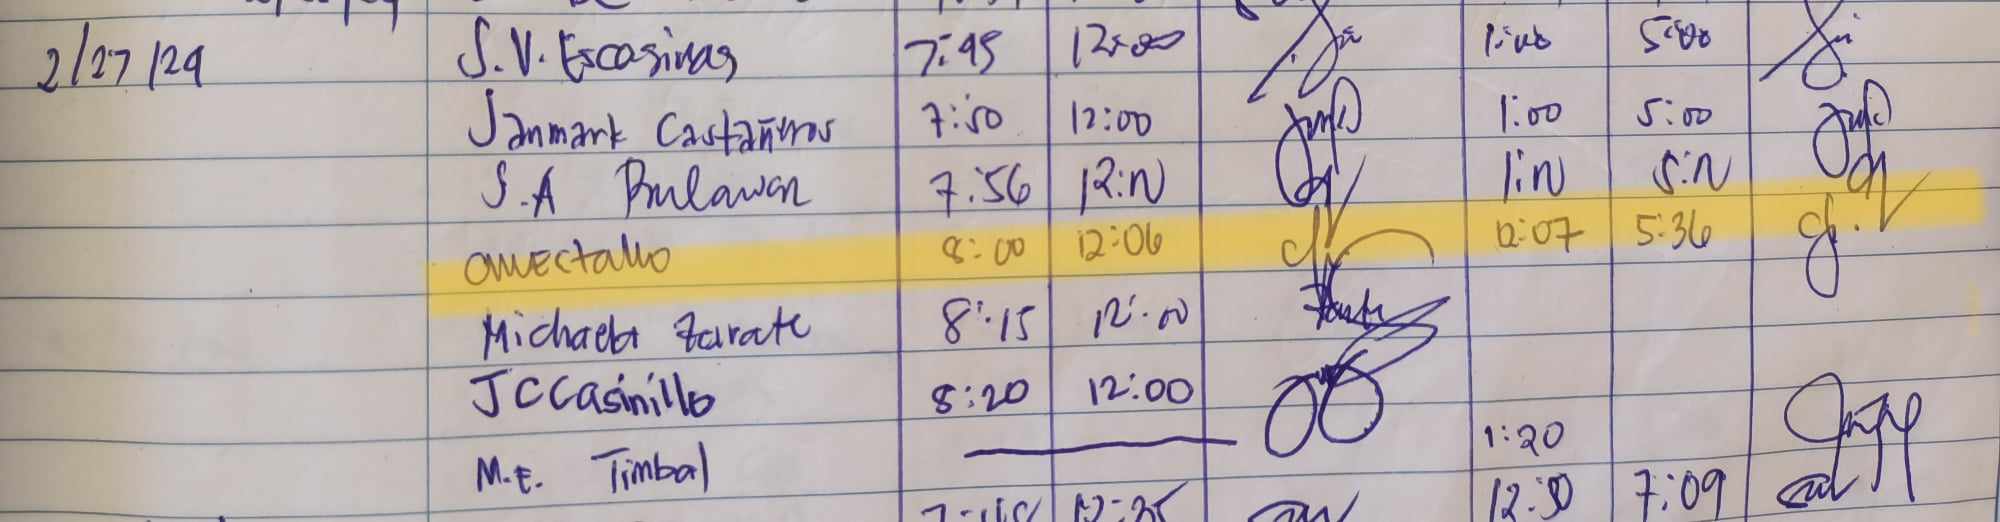 2/27/24 S.V. Escasinas 7:45 12:00 1:00 5:00
Janmark Castañeros 7:50 12:00 1:00 5:00
S.A Bulawan 7:56 12:N 1:N 5:N
8:00 12:06 12:07 5:36
Michaela Zarate 8:15 12:00
JC Casinillo 8:20 12:00
M.E. Timbal 1:20
12:30 7:09